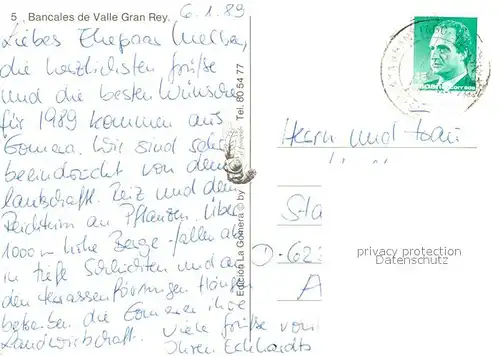 5 Bancales de Valle Gran Rey.
6.1.89
Liebes Ehepaar
die herzlichsten Grüße
und die besten Wünsche
für 1989 kommen aus
Gomera. Wir sind sehr
beeindruckt von dem
landschaftl. Reiz und dem
Reichtum an Pflanzen. Über
1000 m hohe Berge fallen ab
in tiefe Schluchten und an
den terrassenförmigen Hängen
betreiben die Gomerer ihre
Landwirtschaft. Viele Grüße von
Ihren Eckhardts
Edicion La Gomera © by
Tel. 80 54 77
45
Herrn und Frau
Sta
D-62
A
privacy protection
Datenschutz